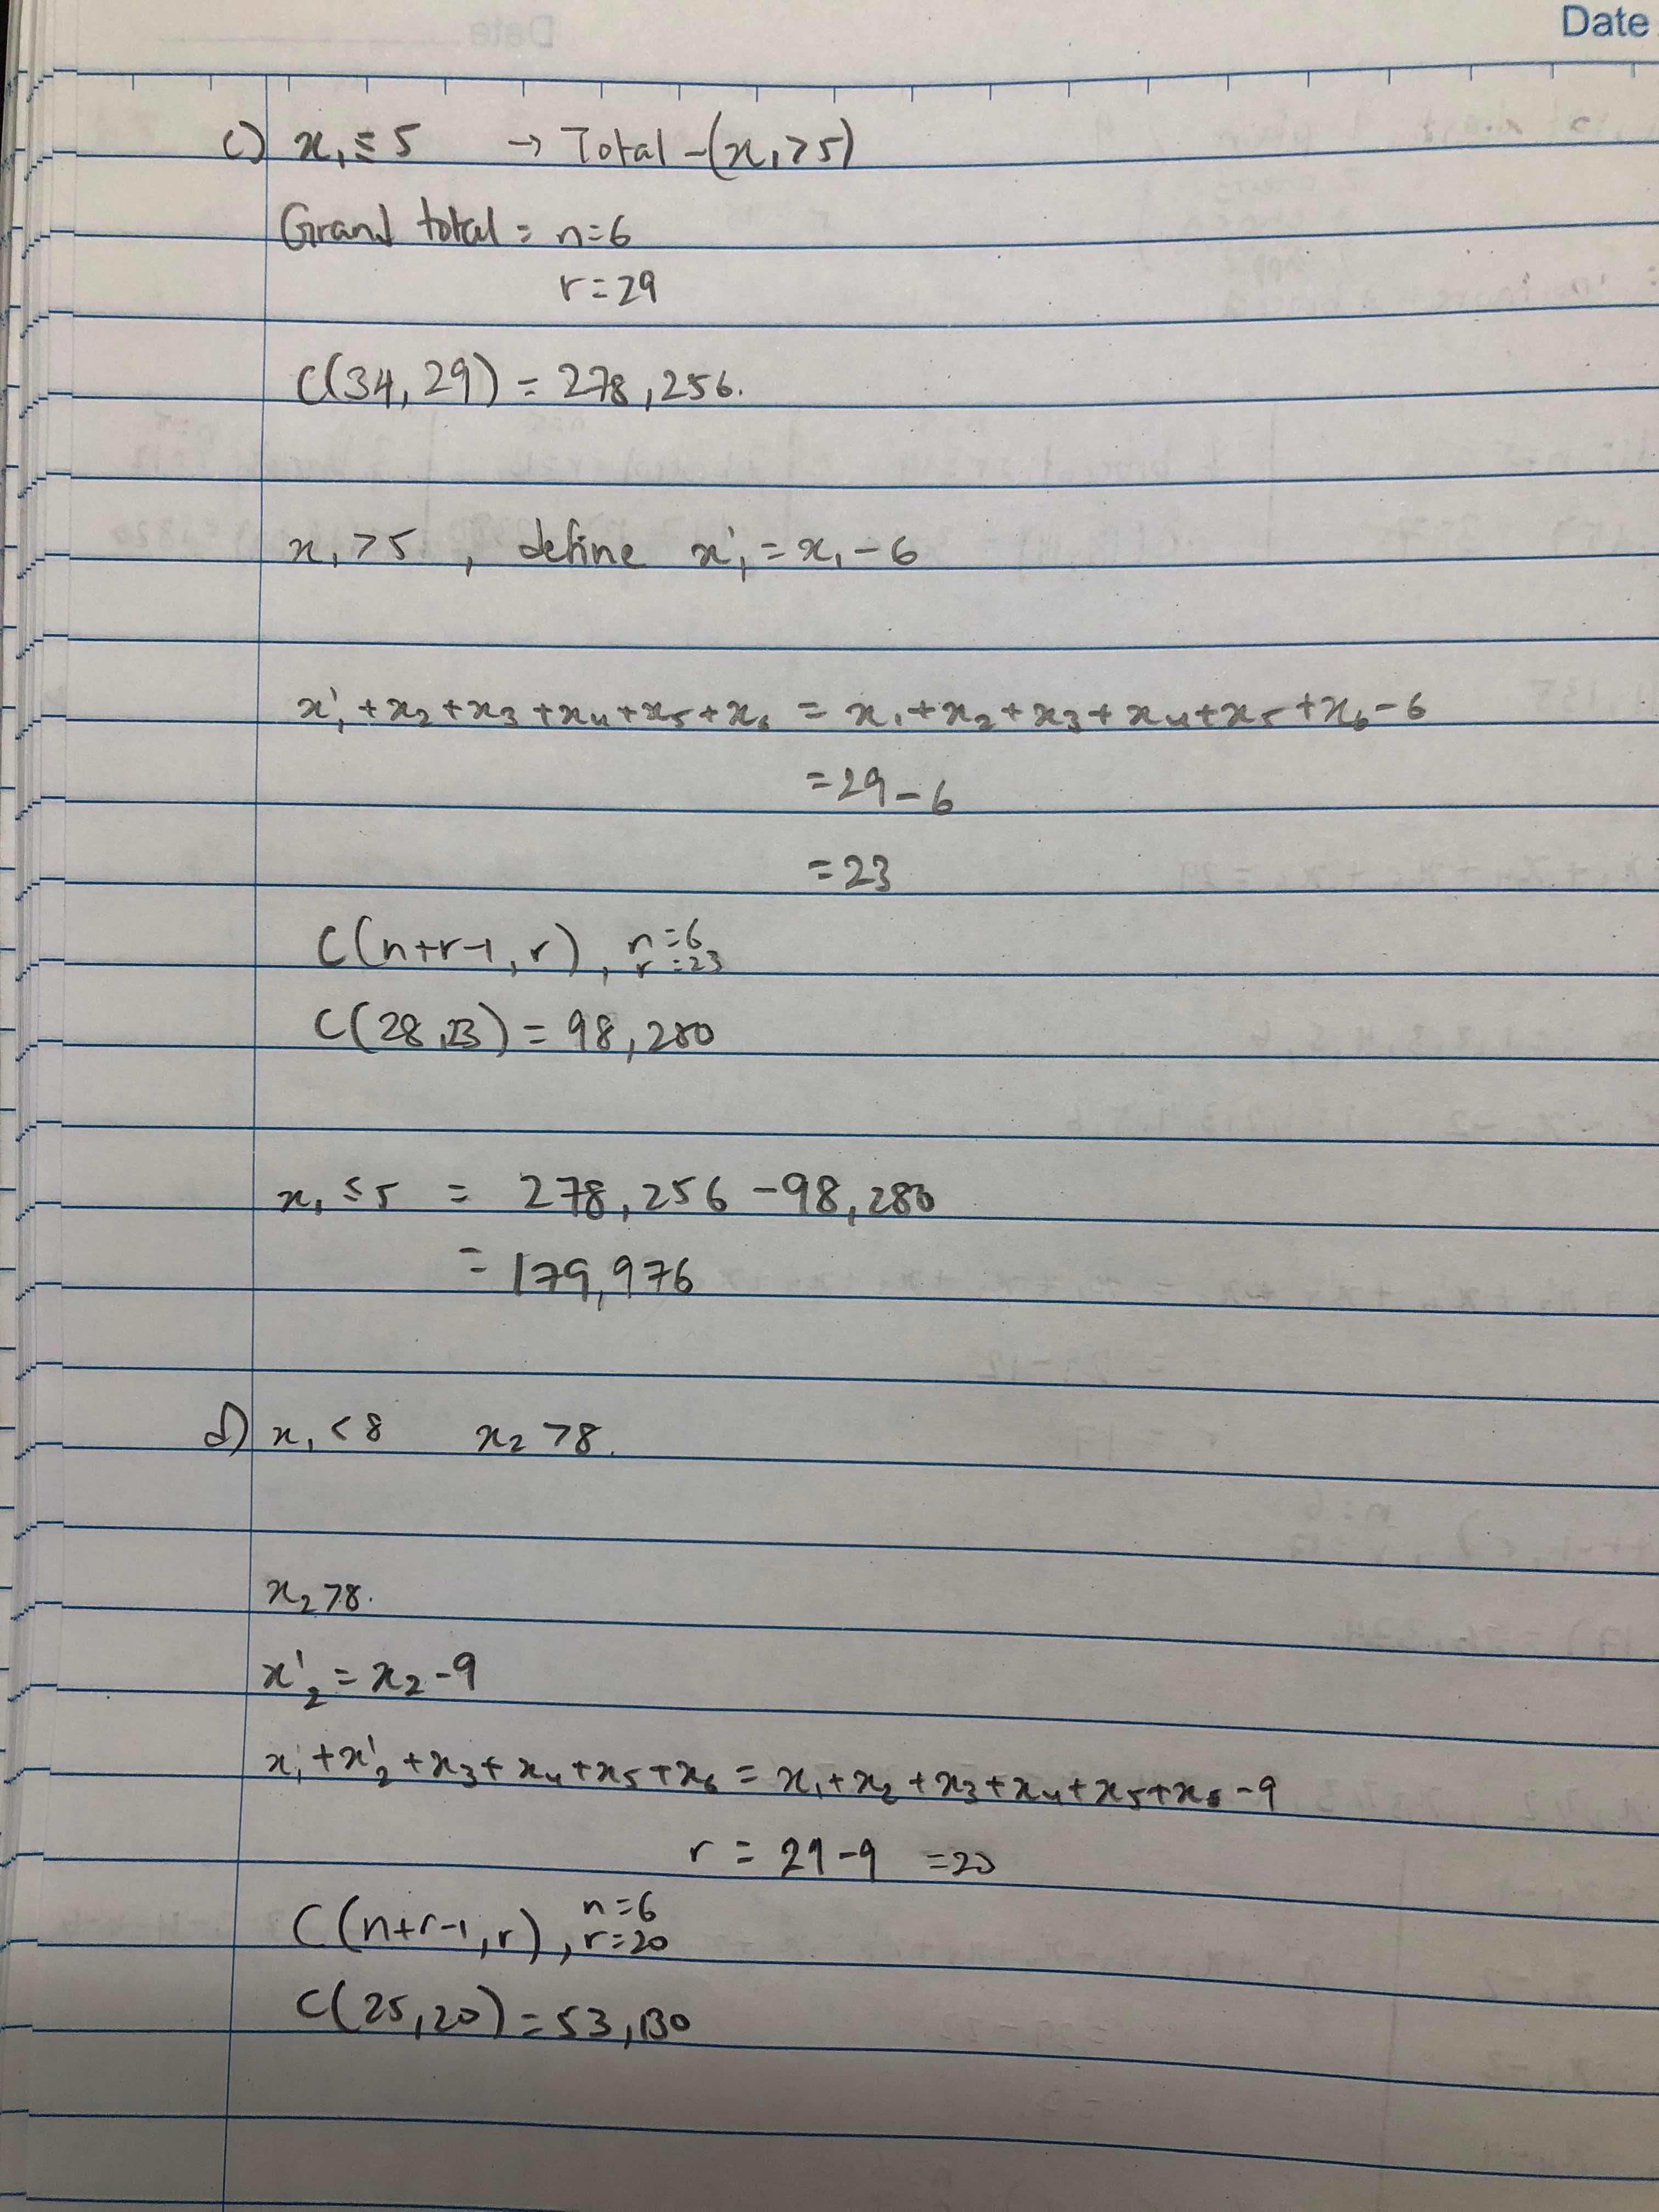 Date
c) x₁ ≤ 5 → Total - (x₁ > 5)
Grand total = n = 6
r = 29
C(34, 29) = 278,256.
x₁ > 5 , define x'₁ = x₁ - 6
x'₁ + x₂ + x₃ + x₄ + x₅ + x₆ = x₁ + x₂ + x₃ + x₄ + x₅ + x₆ - 6
= 29 - 6
= 23
C(n+r-1, r), n = 6
r = 23
C(28, 23) = 98,280
x₁ ≤ 5 = 278,256 - 98,280
= 179,976
d) x₁ < 8 x₂ > 8.
x₂ > 8.
x'₂ = x₂ - 9
x₁ + x'₂ + x₃ + x₄ + x₅ + x₆ = x₁ + x₂ + x₃ + x₄ + x₅ + x₆ - 9
r = 29 - 9 = 20
C(n+r-1, r), n = 6
r = 20
C(25, 20) = 53,130